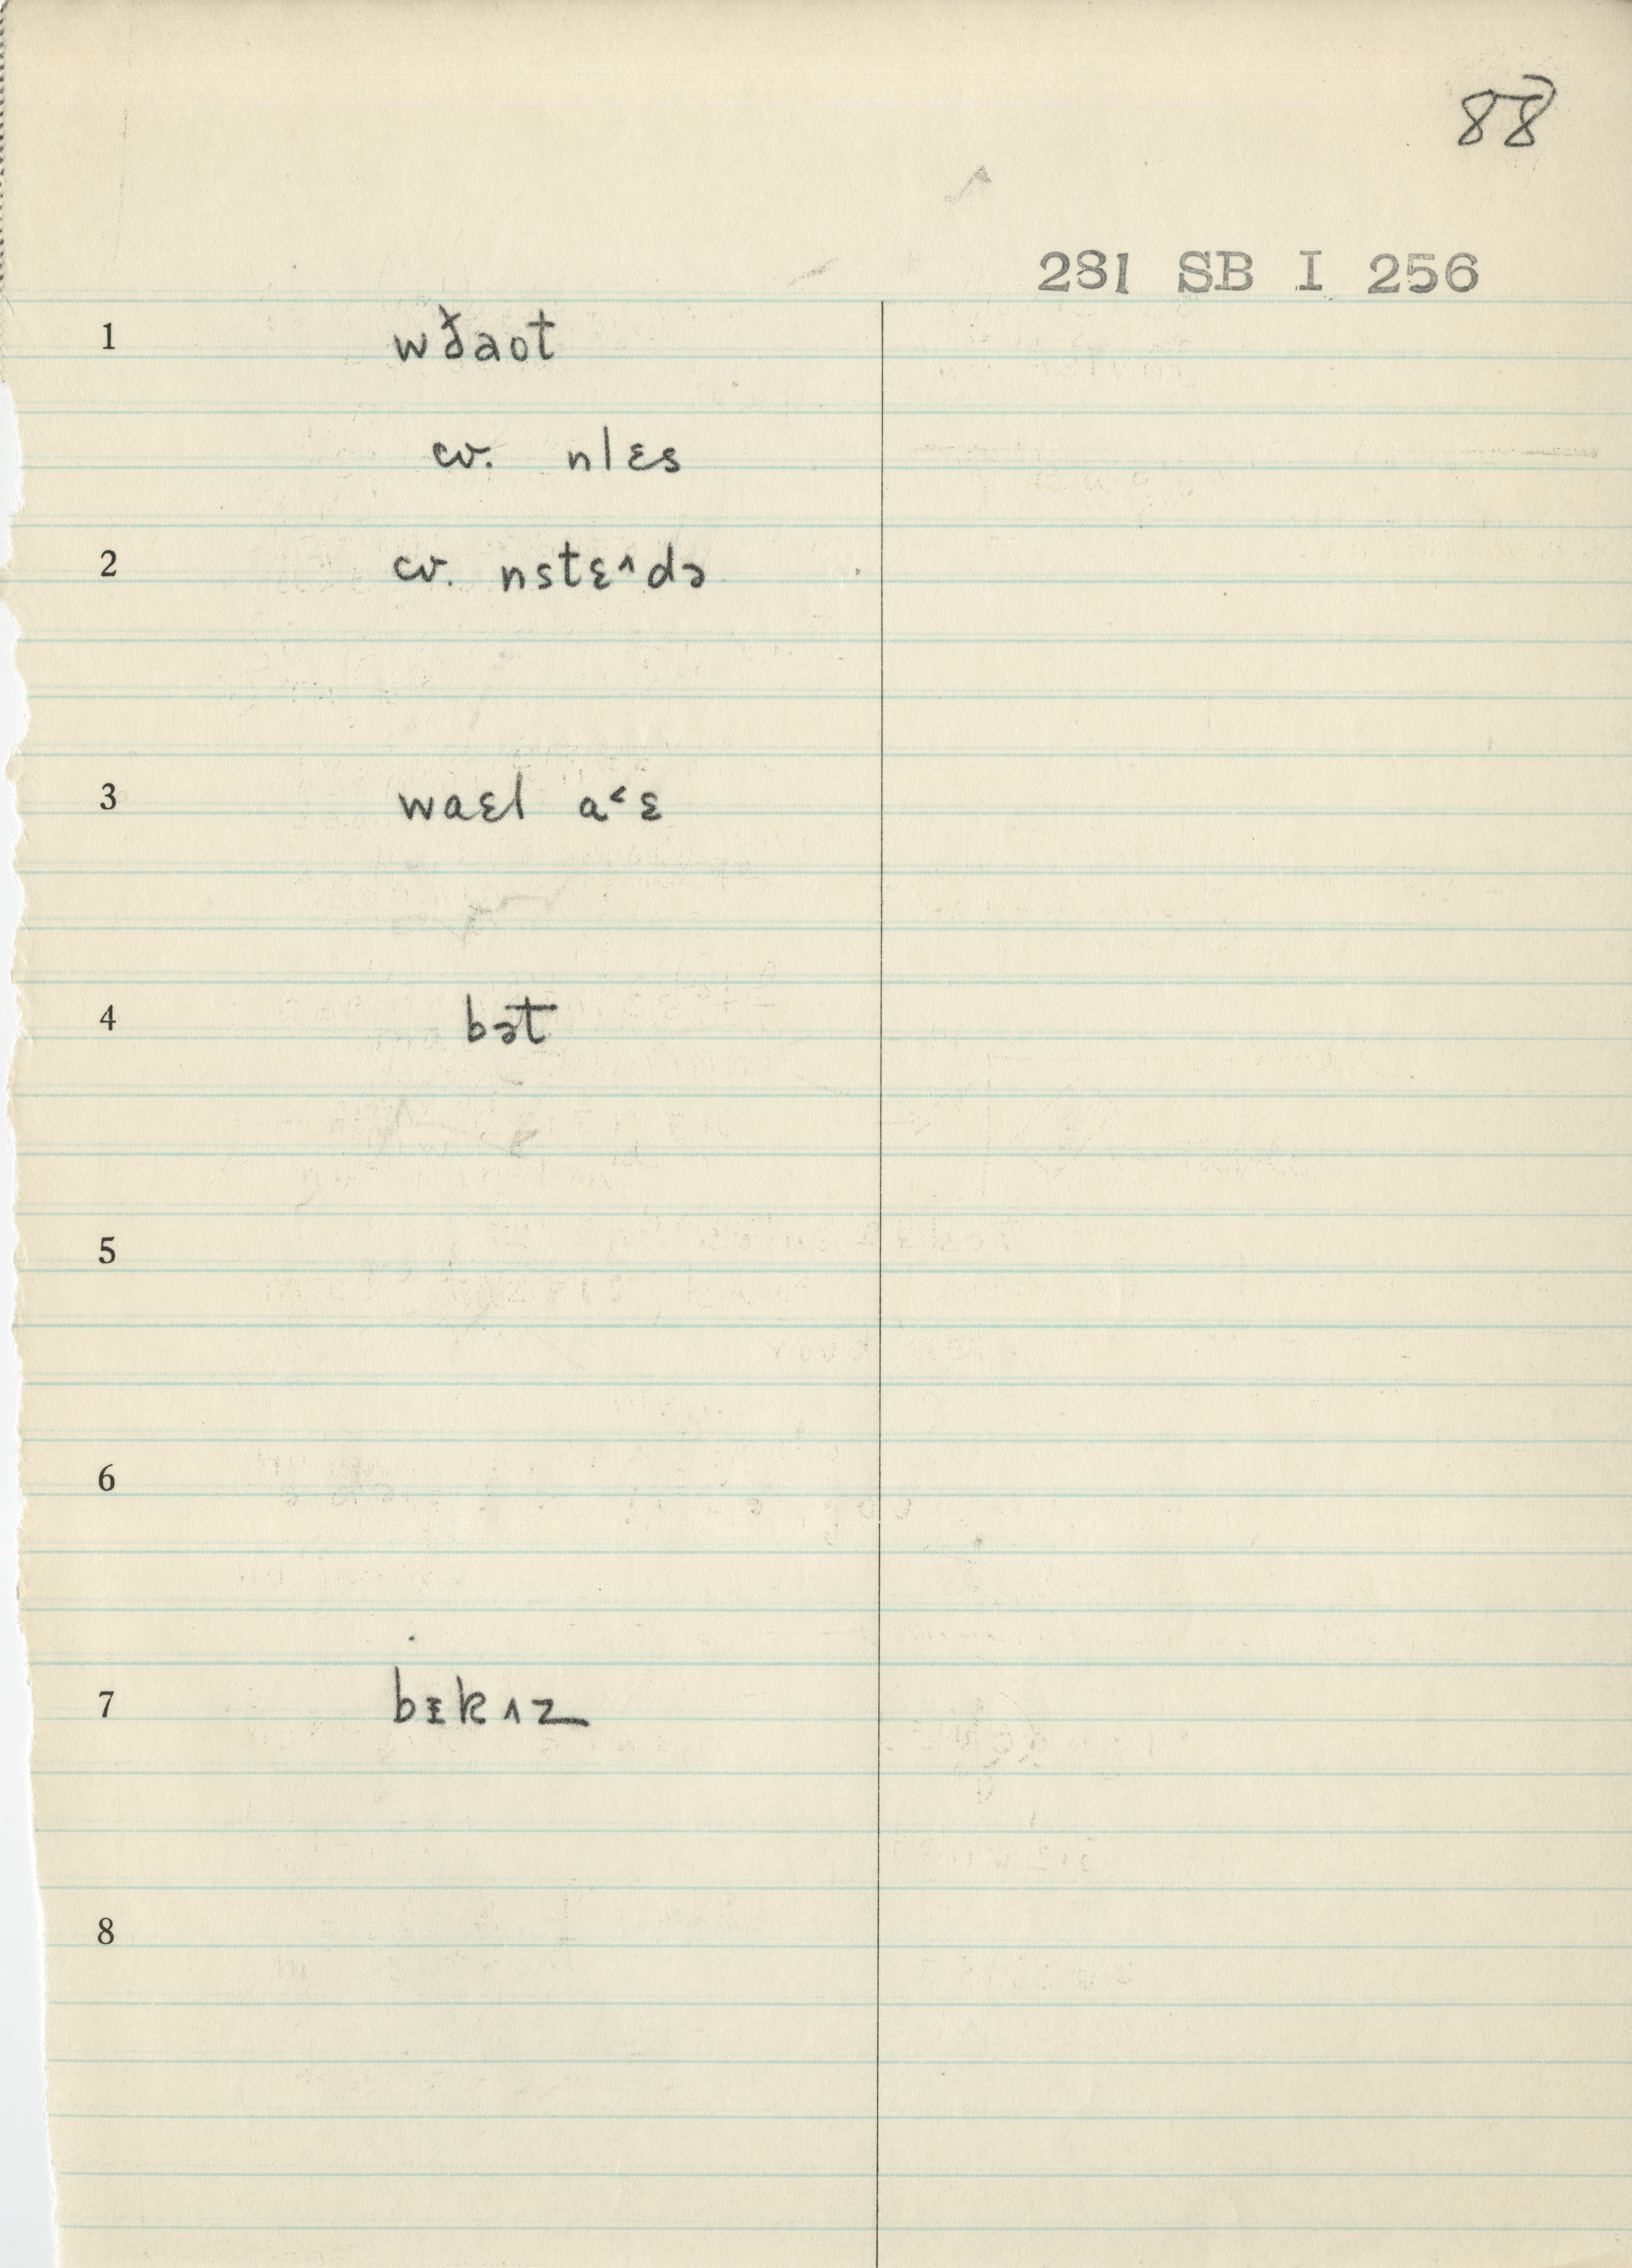 88
281 SB I 256
1 wðaot
cv. nlɛs
2 cv. nstɛ^də
3 waɛl a˂ɛ
4 bət
5
6
7 bɪkʌz
8